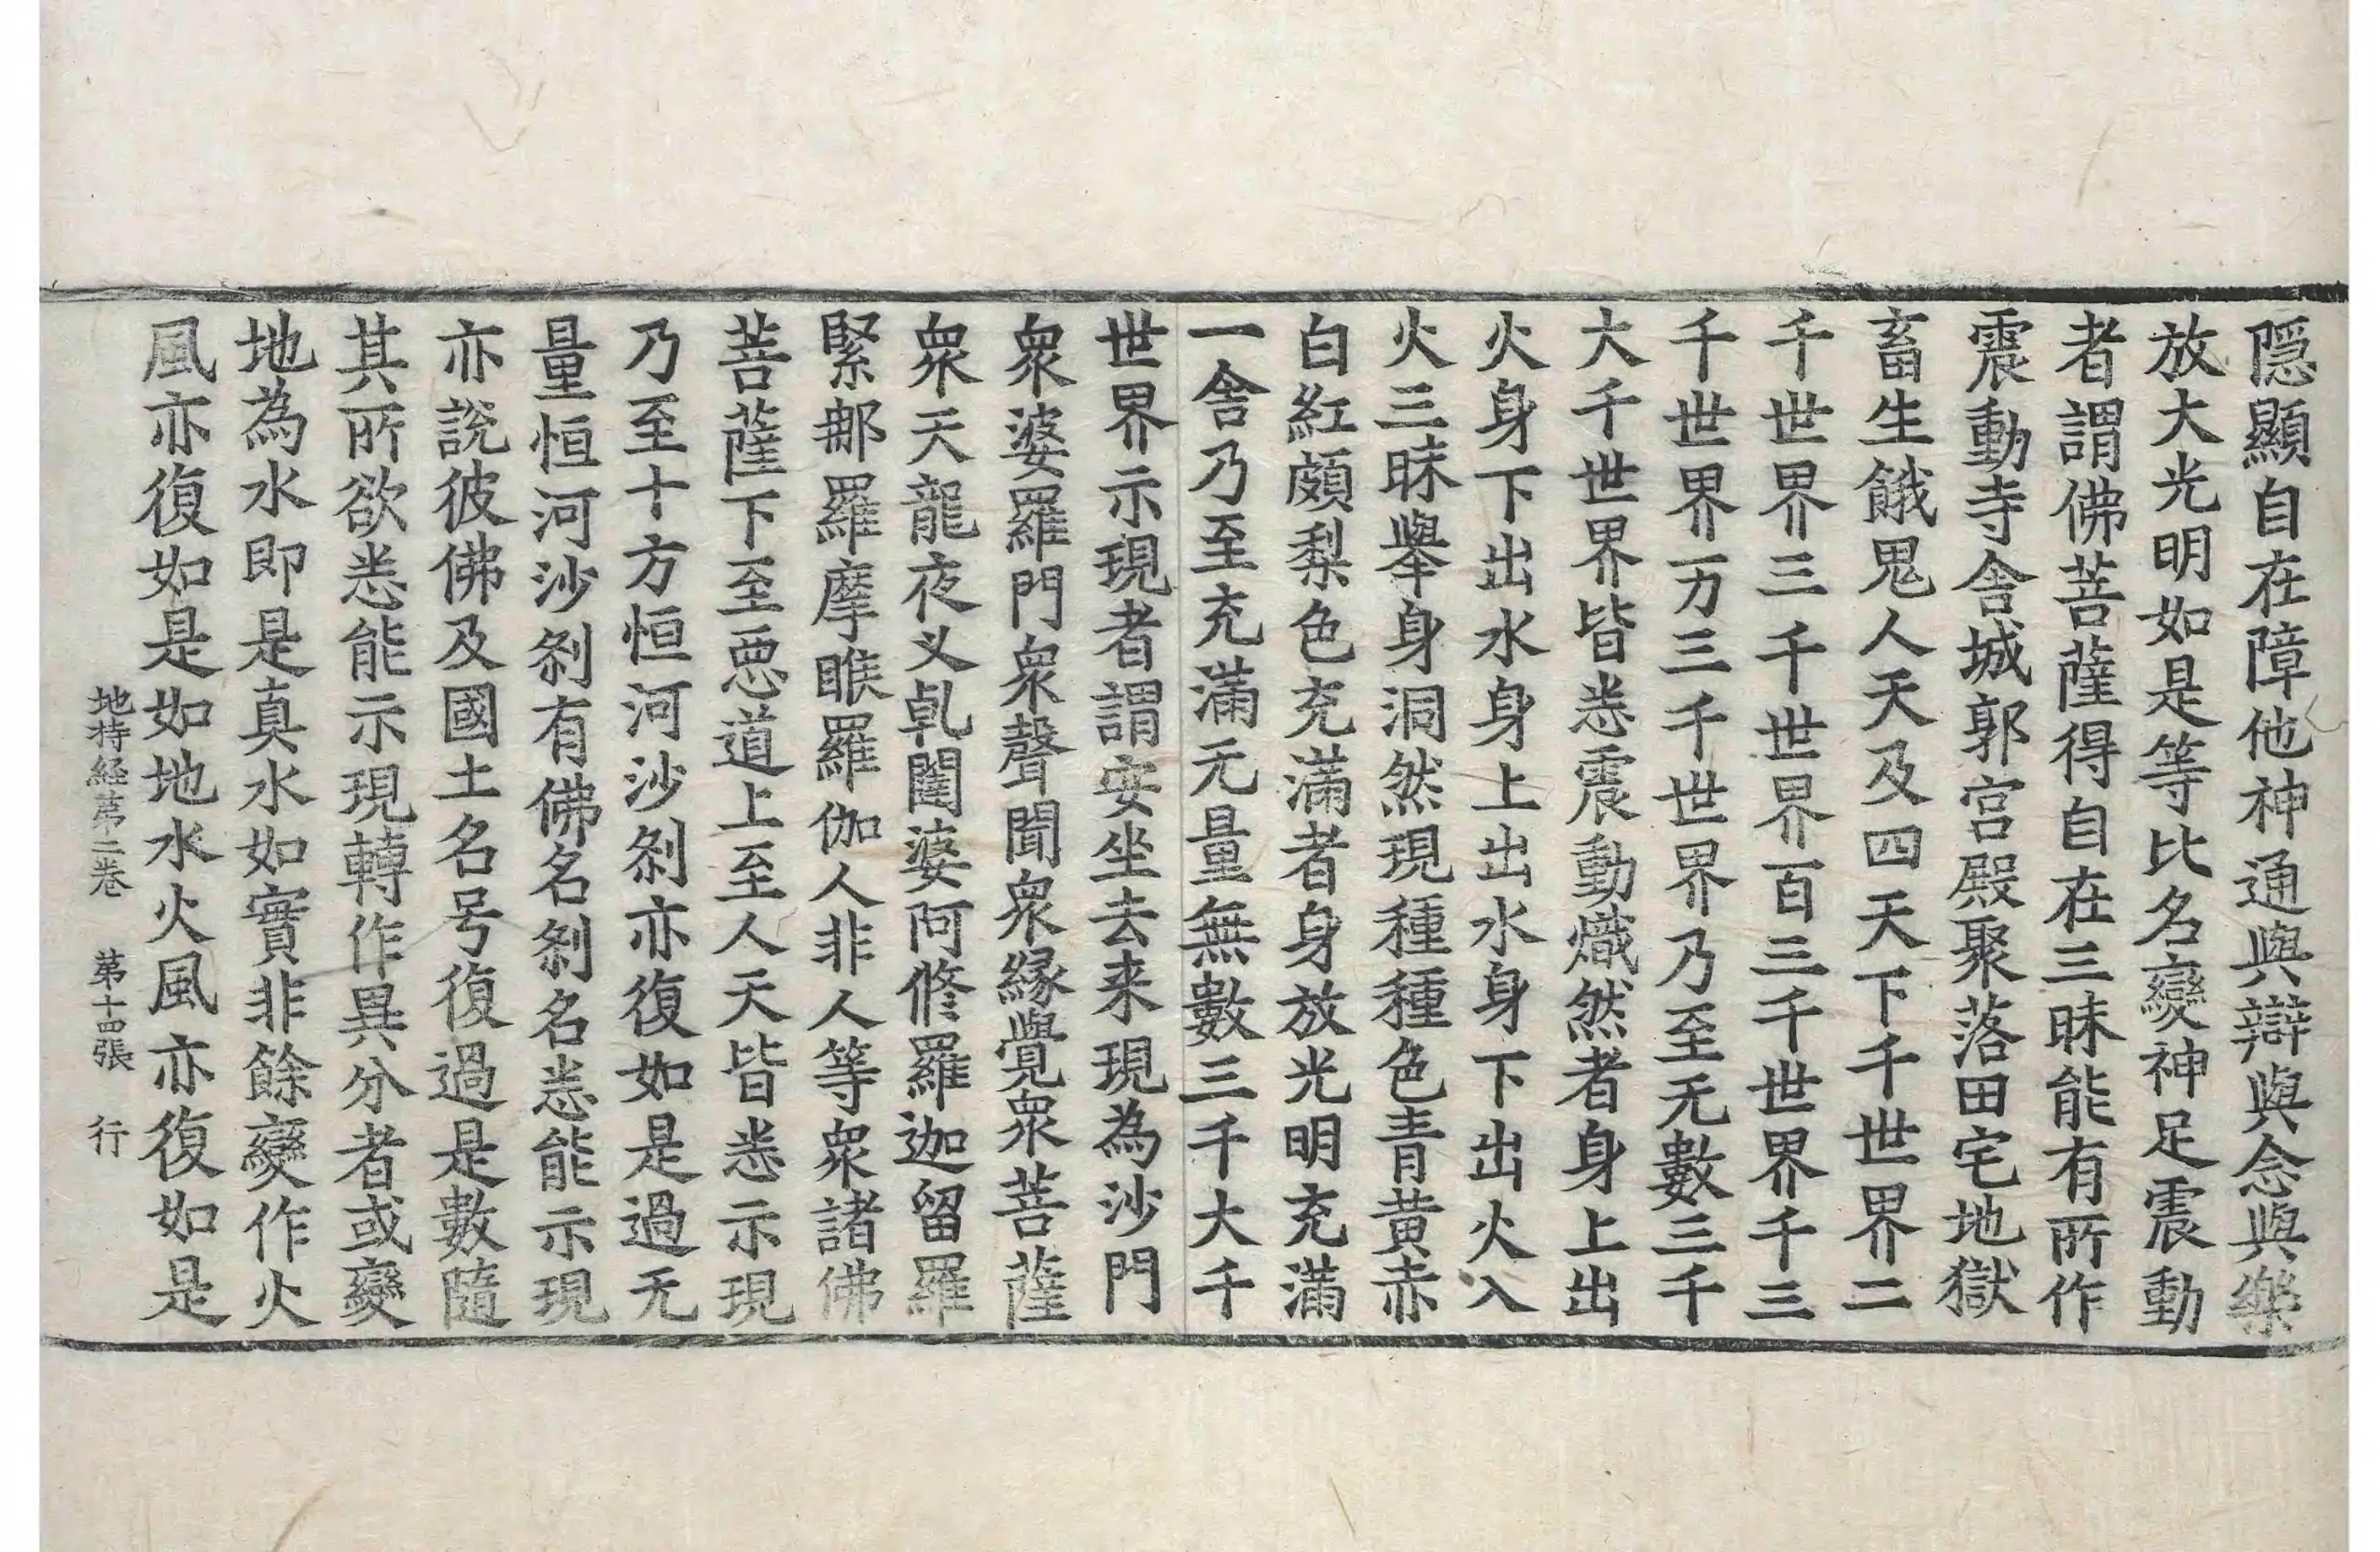 隱顯自在障他神通與辯與念與樂
放大光明如是等比名變神足震動
者謂佛菩薩得自在三昧能有所作
震動寺舍城郭宮殿聚落田宅地獄
畜生餓鬼人天及四天下千世界二
千世界三千世界百三千世界千三
千世界万三千世界乃至无數三千
大千世界皆悉震動熾然者身上出
火身下出水身上出水身下出火入
火三昧舉身洞然現種種色青黃赤
白紅頗梨色充滿者身放光明充滿
一舍乃至充滿无量無數三千大千
世界示現者謂安坐去来現為沙門
衆婆羅門衆聲聞衆緣覺衆菩薩
衆天龍夜叉乹闥婆阿修羅迦留羅
緊那羅摩睺羅伽人非人等衆諸佛
菩薩下至惡道上至人天皆悉示現
乃至十方恒河沙刹亦復如是過无
量恒河沙刹有佛名刹名悉能示現
亦說彼佛及國土名号復過是數隨
其所欲悉能示現轉作異分者或變
地為水即是真水如實非餘變作火
風亦復如是如地水火風亦復如是
地持経第二卷 第十四張 行